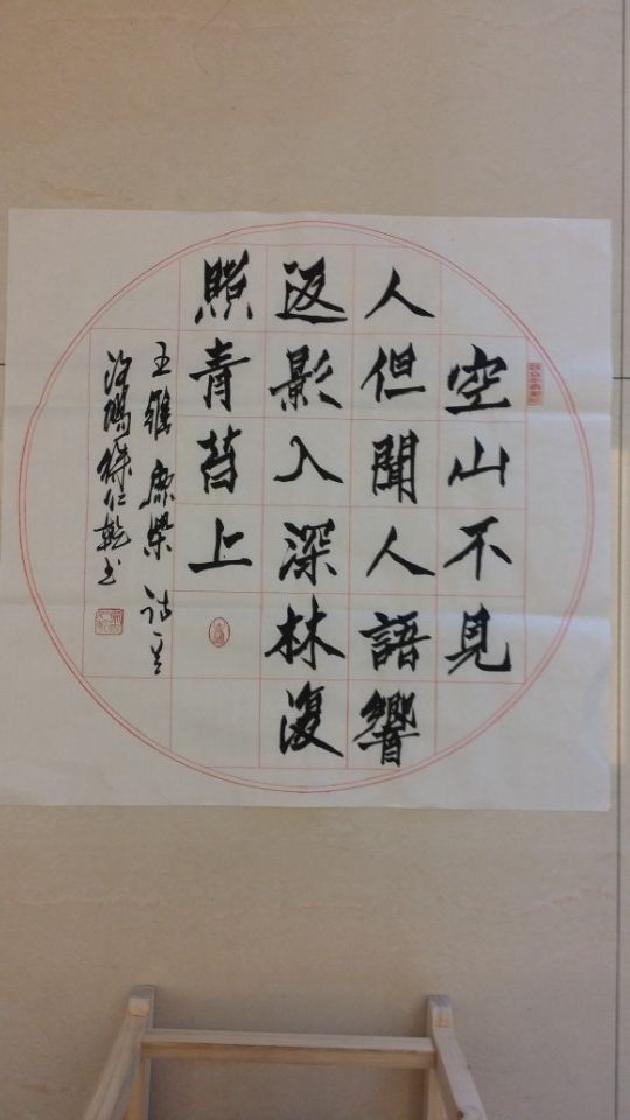 空山不見
人但聞人語響
返影入深林復
照青苔上
王維鹿柴詩一首
仁乾書